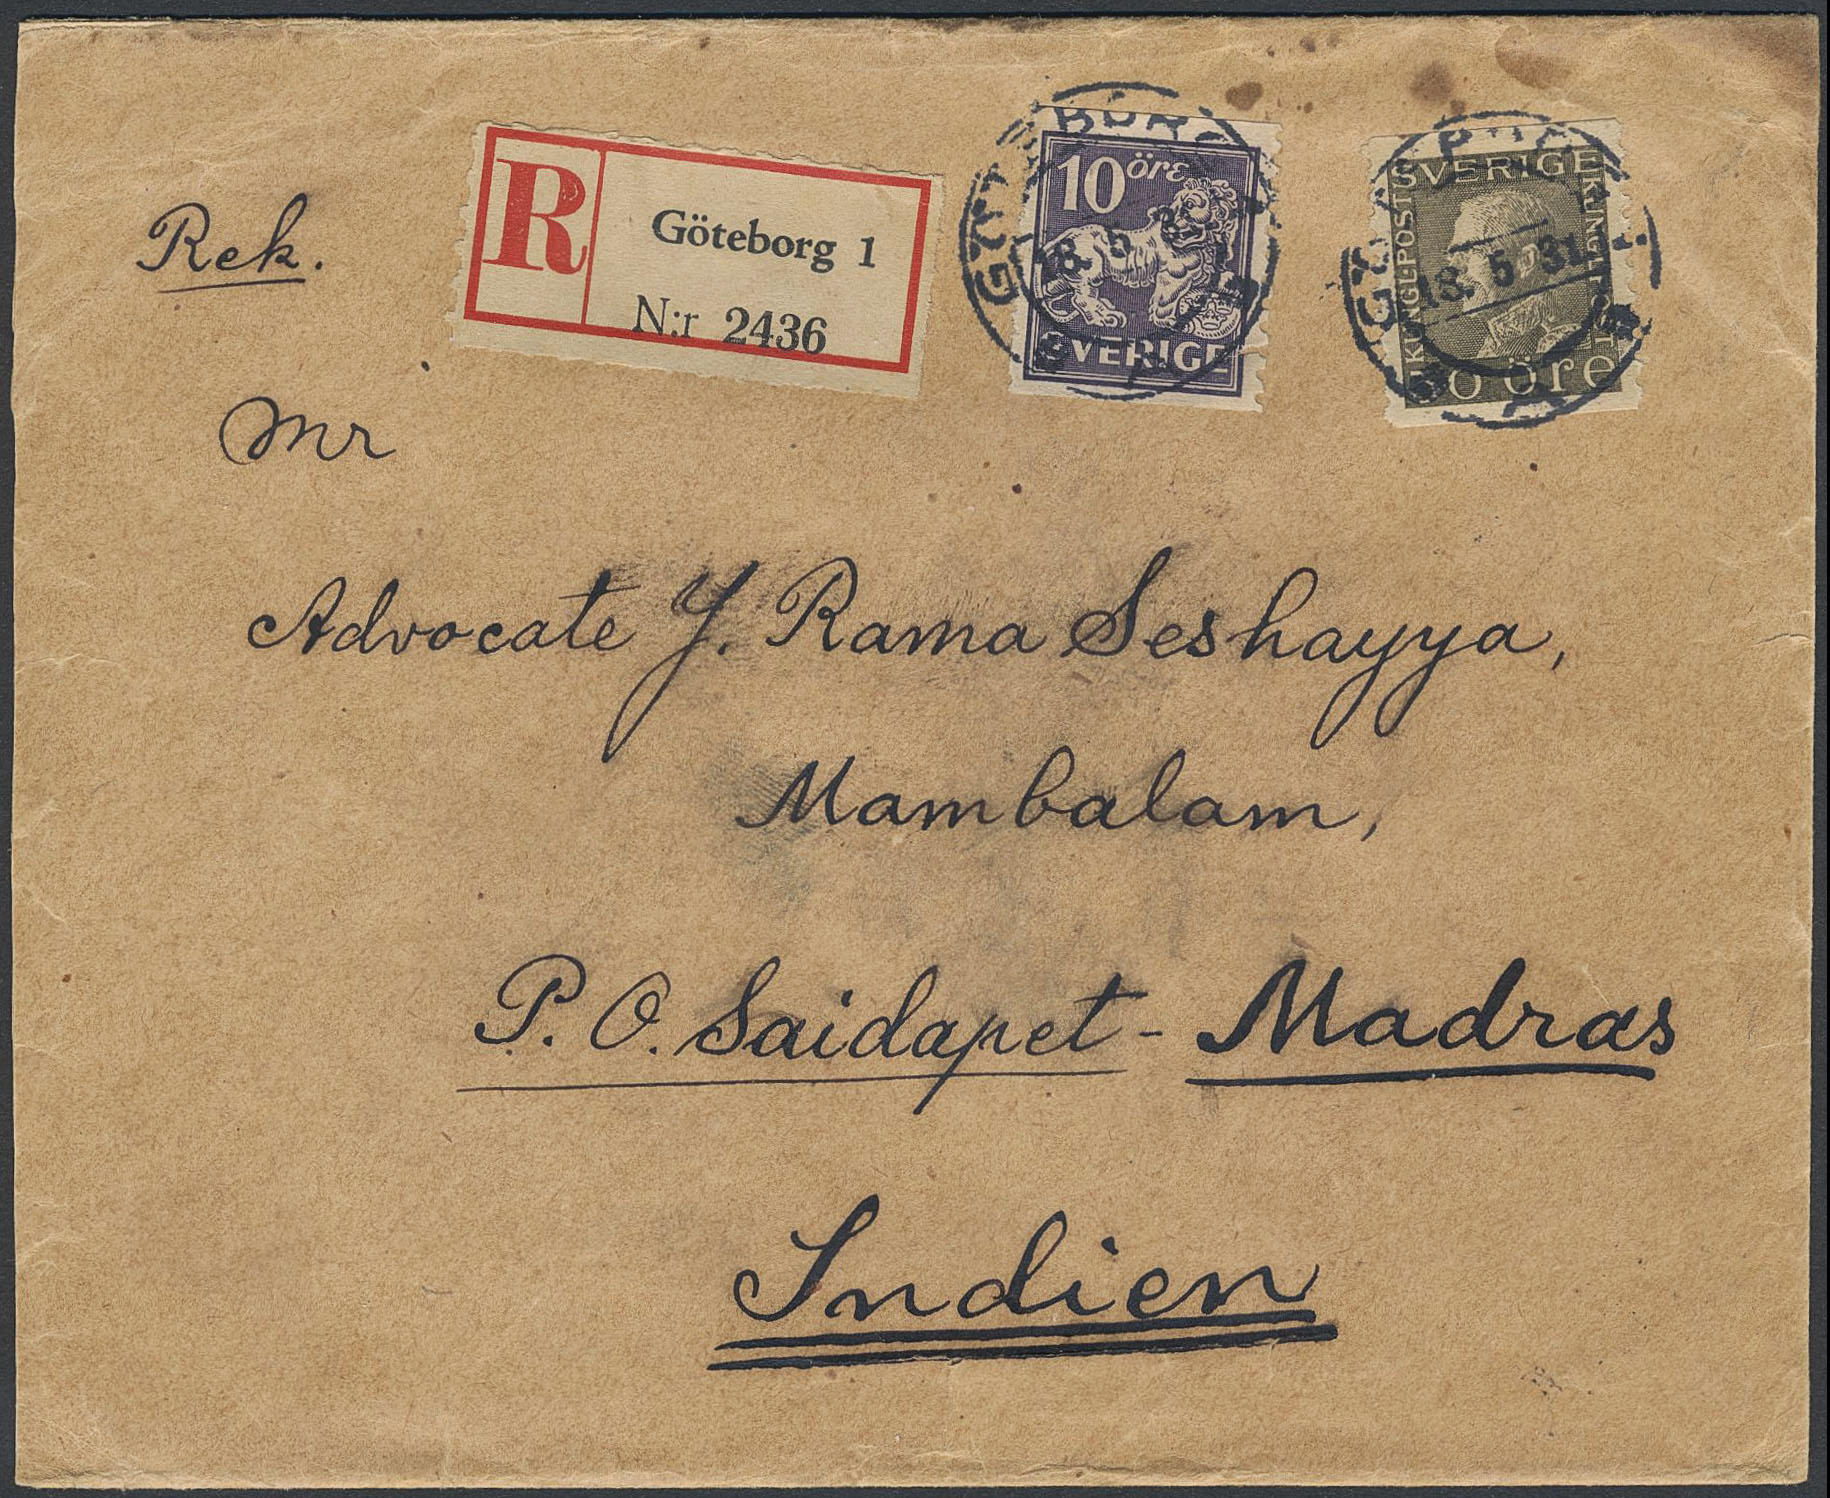 Rek.
R
Göteborg 1
N:r 2436
GÖTEBORG
18. 5
10 öre
SVERIGE
GÖTEBORG
18. 5. 31
SVERIGE
KUNGL POSTS
öre
Mr
Advocate Y. Rama Seshayya,
Mambalam,
P. O. Saidapet - Madras
Indien